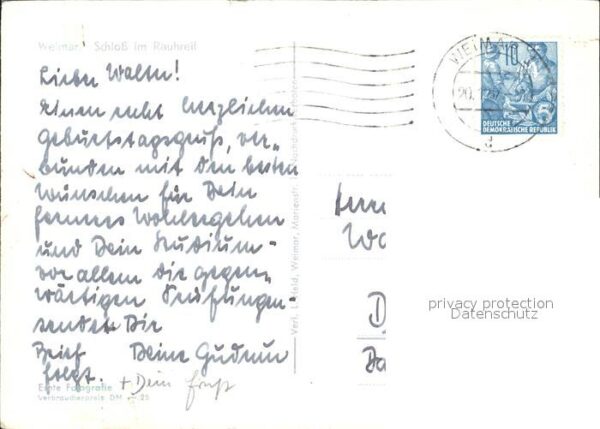 Weimar. Schloß im Rauhreif
Lieber Walter!
Einen recht herzlichen
Geburtstagsgruß, ver-
bunden mit den besten
Wünschen für Dein
ferneres Wohlergehen
und Dein Studium -
vor allem die gegen-
wärtigen Prüfungen -
sendet Dir
Brief Deine Gudrun
folgt.
+ Dein
Echte Fotografie
Verbraucherpreis DM -.25
WEIMAR
20.
d
10
5
DEUTSCHE
DEMOKRATISCHE REPUBLIK
Herrn
D
privacy protection
Datenschutz